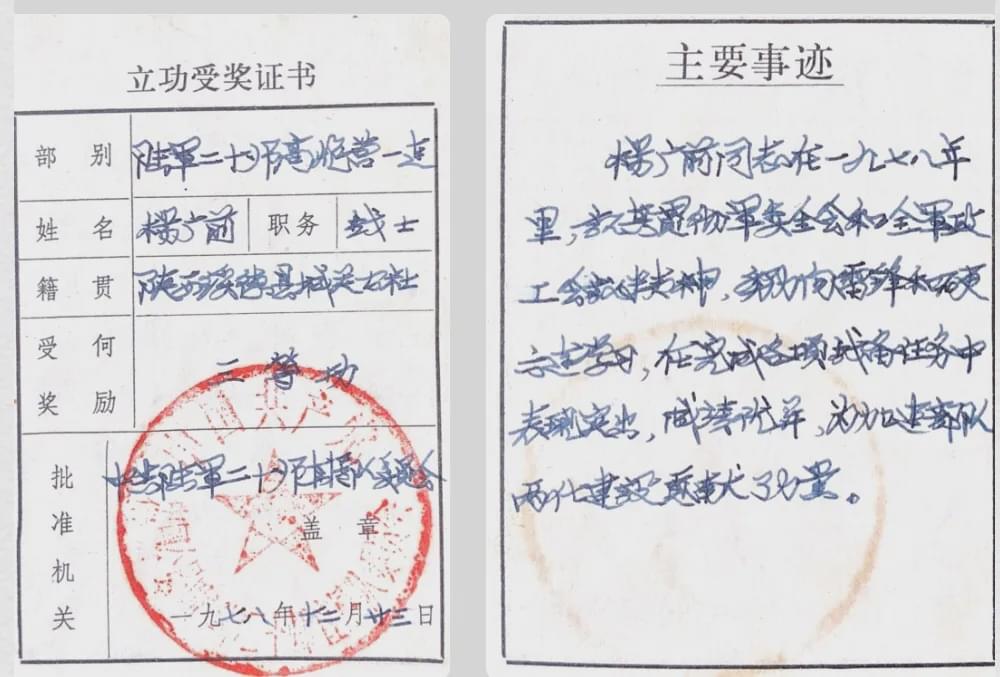 立功受奖证书
部别 陆军二十师高炮营一连
姓名 杨广前 职务 战士
籍贯 陕西绥德县城关公社
受何奖励 三等功
批准机关 中共陆军二十师 委员会
盖章
一九七八年十二月廿三日
主要事迹
杨广前同志在一九七八年
里,认真贯彻军委全会和全军政
工会议精神,积极向雷锋和硬
六连学习,在完成各项战备任务中
表现突出,成绩优异,为加速部队
两化建设贡献了力量。